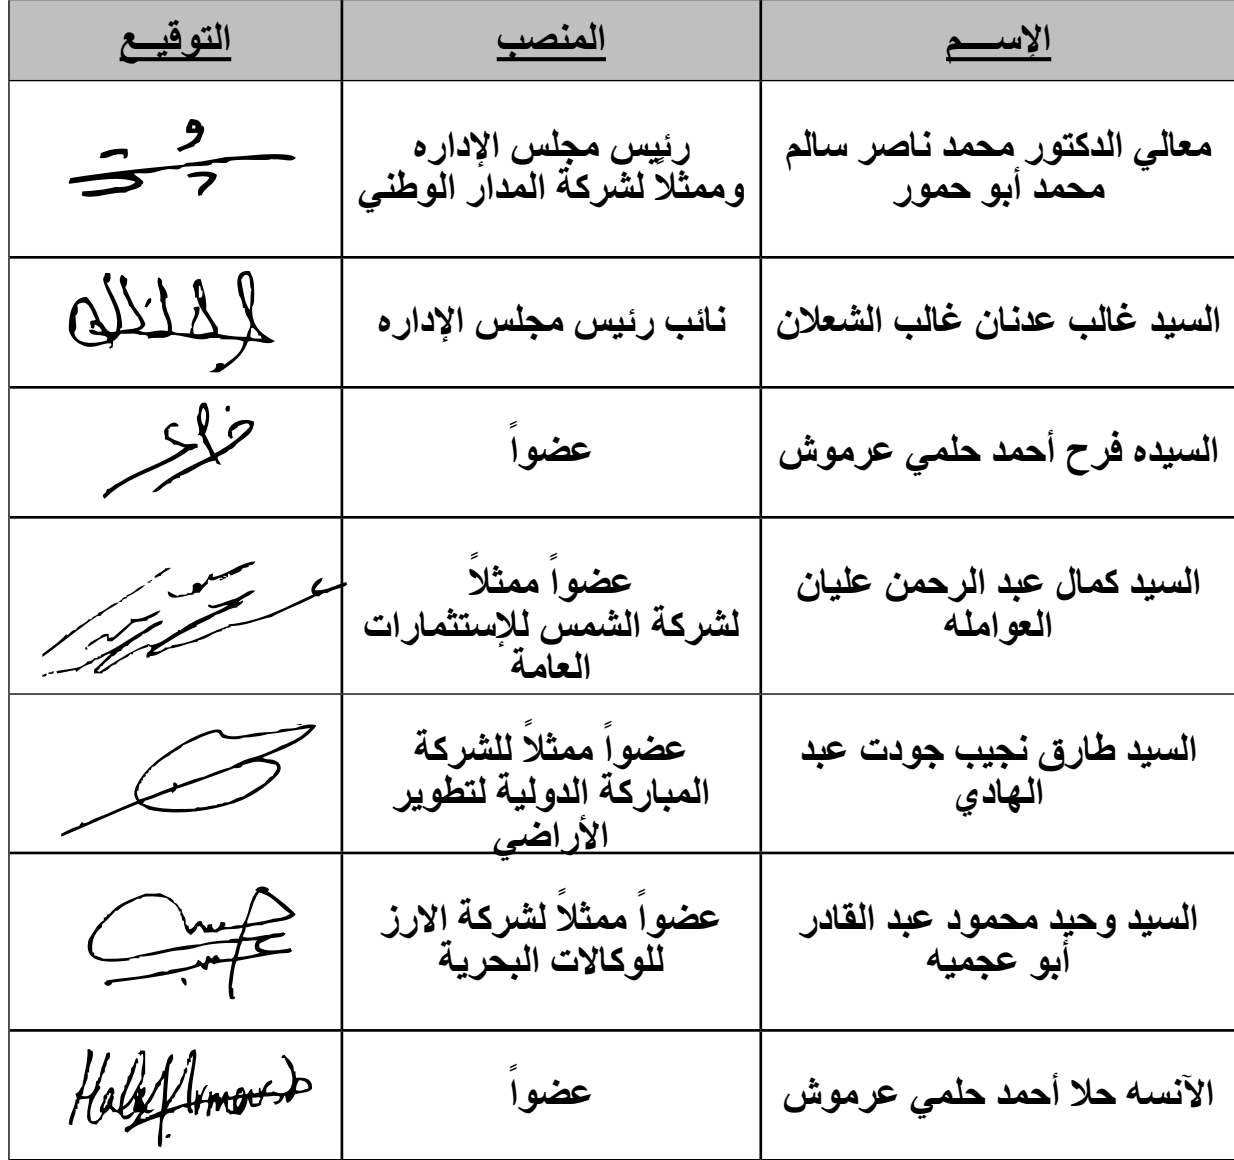 الإســـم المنصب التوقيـــع
معالي الدكتور محمد ناصر سالم
محمد أبو حمور
رئيس مجلس الإداره
وممثلاً لشركة المدار الوطني
السيد غالب عدنان غالب الشعلان
نائب رئيس مجلس الإداره
السيده فرح أحمد حلمي عرموش
عضواً
السيد كمال عبد الرحمن عليان
العوامله
عضواً ممثلاً
لشركة الشمس للإستثمارات
العامة
السيد طارق نجيب جودت عبد
الهادي
عضواً ممثلاً للشركة
المباركة الدولية لتطوير
الأراضي
السيد وحيد محمود عبد القادر
أبو عجميه
عضواً ممثلاً لشركة الارز
للوكالات البحرية
الآنسه حلا أحمد حلمي عرموش
عضواً